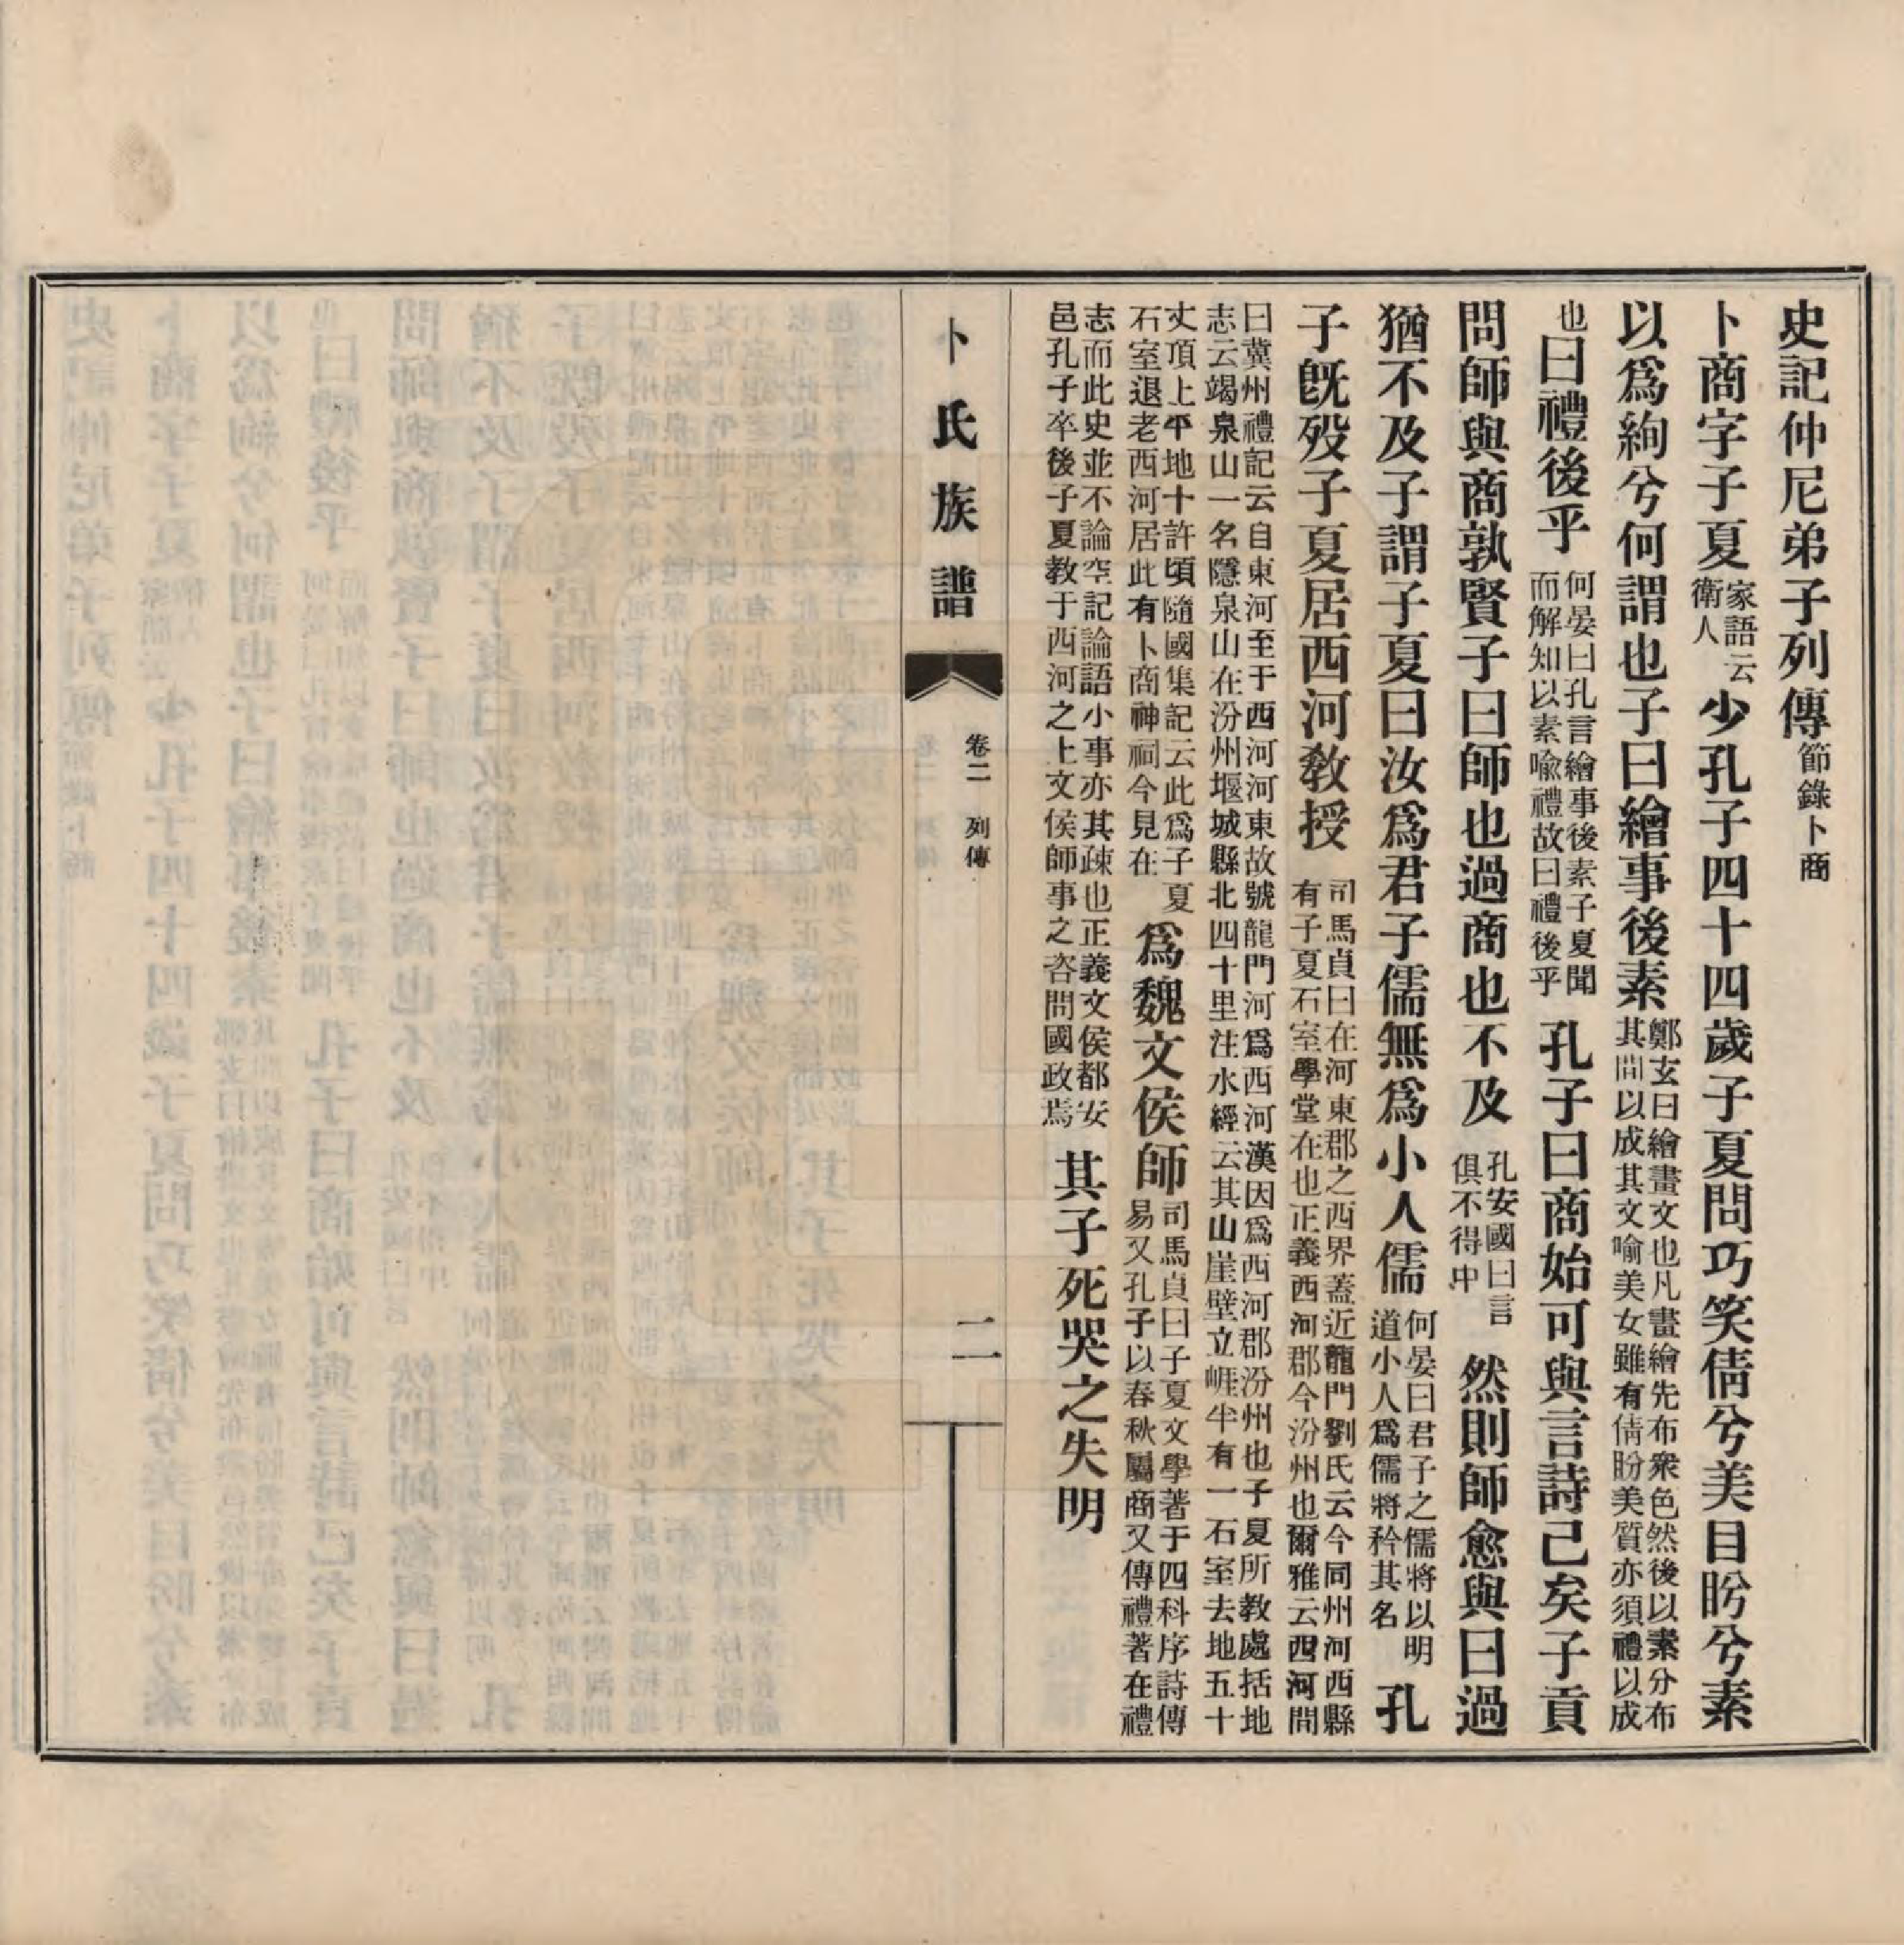 史記仲尼弟子列傳節錄卜商
卜商字子夏家語云衛人少孔子四十四歲子夏問巧笑倩兮美目盻兮素
以爲絢兮何謂也子曰繪事後素鄭玄曰繪畫文也凡畫繪先布衆色然後以素分布其間以成其文喻美女雖有倩盼美質亦須禮以成
也曰禮後乎何晏曰孔言繪事後素子夏聞而解知以素喻禮故曰禮後乎孔子曰商始可與言詩已矣子貢
問師與商孰賢子曰師也過商也不及孔安國曰言俱不得中然則師愈與曰過
猶不及子謂子夏曰汝爲君子儒無爲小人儒何晏曰君子之儒將以明道小人爲儒將矜其名孔
子旣歿子夏居西河教授司馬貞曰在河東郡之西界蓋近龍門劉氏云今同州河西縣有子夏石室學堂在也正義西河郡今汾州也爾雅云西河間
曰冀州禮記云自東河至于西河河東故號龍門河爲西河漢因爲西河郡汾州也子夏所教處括地
志云竭泉山一名隱泉山在汾州堰城縣北四十里注水經云其山崖壁立崕半有一石室去地五十
丈頂上平地十許頃隨國集記云此爲子夏石室退老西河居此有卜商神祠今見在爲魏文侯師司馬貞曰子夏文學著于四科序詩傳易又孔子以春秋屬商又傳禮著在禮
志而此史並不論空記論語小事亦其疎也正義文侯都安邑孔子卒後子夏教于西河之上文侯師事之咨問國政焉其子死哭之失明
卜氏族譜
卷二 列傳
二